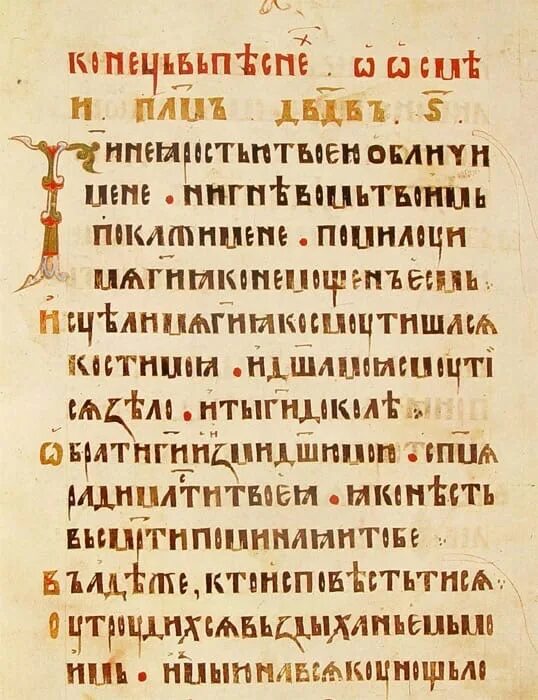 конець въ пѣсне х ѿ ѿ осмѣ
и пл҃мъ дв҃двъ ѕ҃
Г҃и не ꙗростью твоею обличи
мене · ни гнѣвомь твоимь
покажи мене · помилоуи
мѧ г҃и ꙗко немощенъ есмь
исцѣли мѧ г҃и ꙗко смоутишасѧ
кости моꙗ · и дш҃а моꙗ смоути
сѧ зѣло · и ты г҃и доколѣ
ѡбрати г҃и изми дш҃ю мою · сп҃и мѧ
ради млⷭ҇ти твоеꙗ · ꙗко нѣсть
въ смр҃ти поминаꙗи тобе
въ адѣ же, кто исповѣсть ти сѧ
оутроудихсѧ въздыханьемь мо
имь · измыю на всѧкоу нощь ло